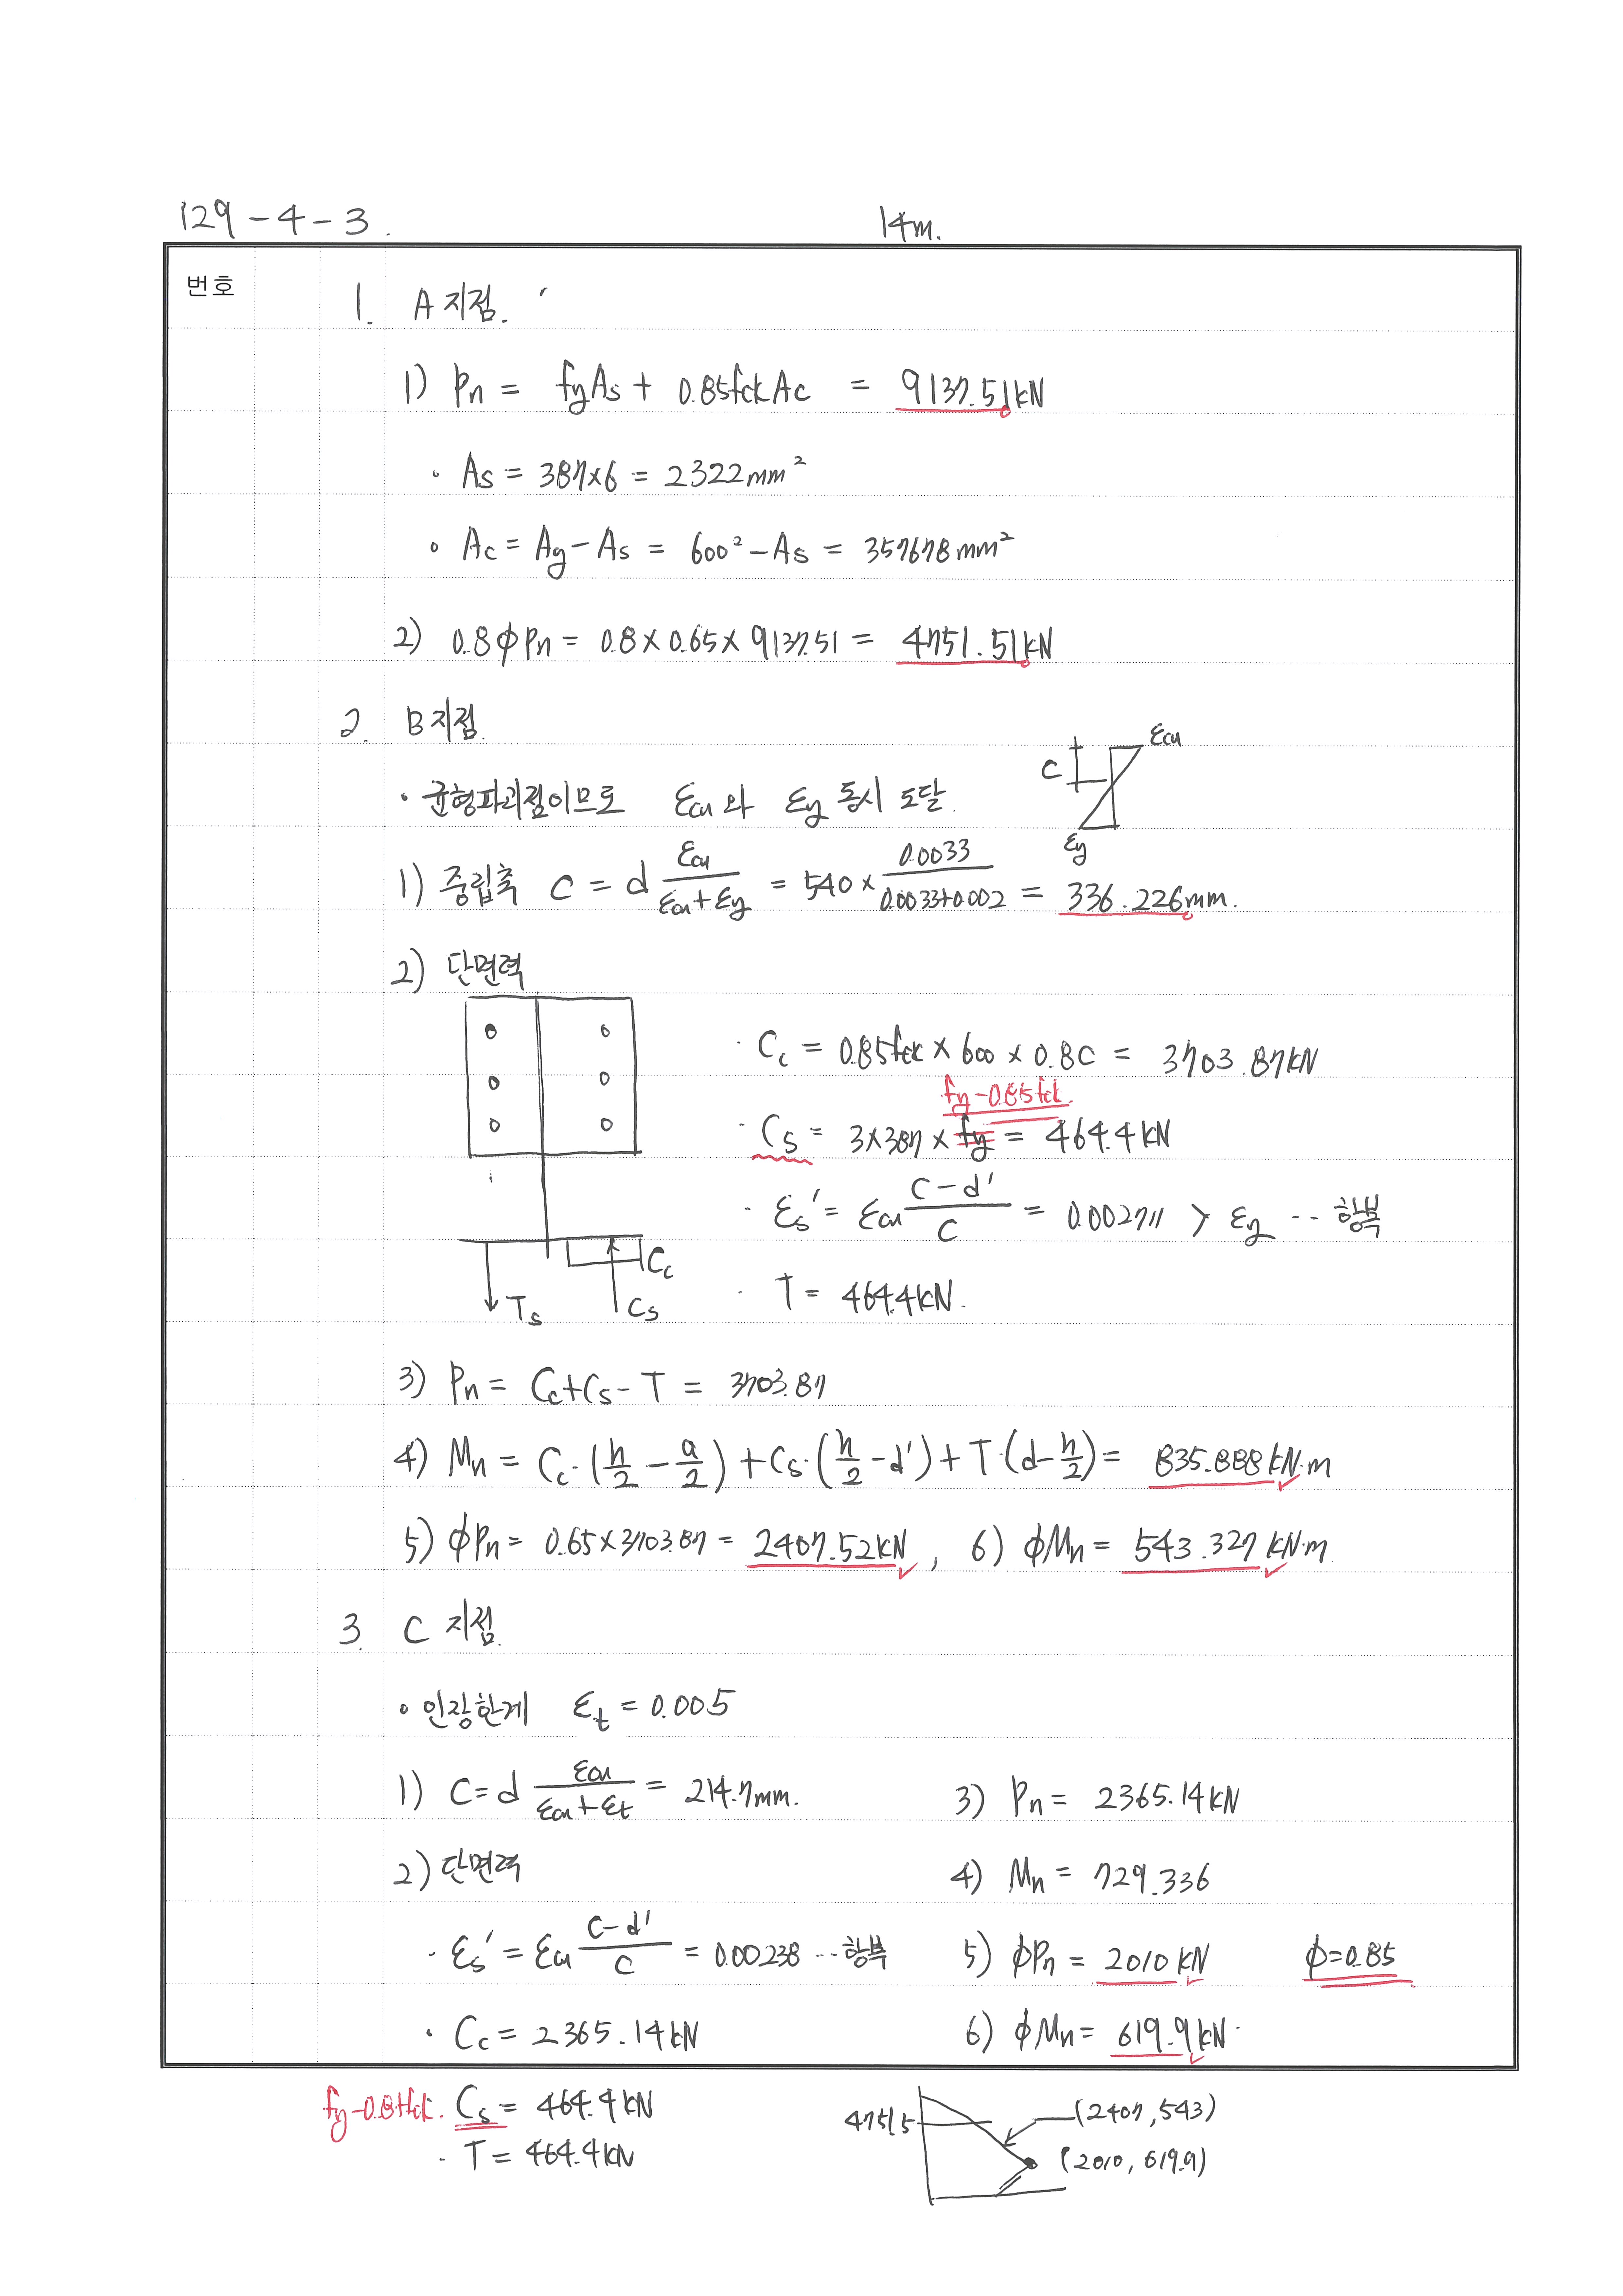 129-4-3.
14m.
번호
1. A지점.
1) Pn = fyAs + 0.85fckAc = 9137.51kN
· As = 387×6 = 2322mm²
· Ac = Ag - As = 600² - As = 357678mm²
2) 0.8ϕPn = 0.8×0.65×9137.51 = 4751.51kN
2. B지점.
· 균형파괴점이므로 εcu와 εy 동시 도달.
C εcu εy
1) 중립축 C = d εcu/(εcu+εy) = 540×0.0033/(0.0033+0.002) = 336.226mm.
2) 단면력
· Cc = 0.85fck × 600 × 0.8C = 3703.87kN
fy-0.85fck.
· Cs = 3×387×fy = 464.4kN
· εs' = εcu (C-d')/C = 0.002711 > εy -- 항복
· T = 464.4kN.
Ts Cs Cc
3) Pn = Cc+Cs-T = 3703.87
4) Mn = Cc·(h/2 - a/2) + Cs·(h/2 - d') + T·(d - h/2) = 835.888kN·m
5) ϕPn = 0.65×3703.87 = 2407.52kN, 6) ϕMn = 543.327kN·m
3. C 지점.
· 인장한계 εt = 0.005
1) C = d εcu/(εcu+εt) = 214.7mm.
3) Pn = 2365.14kN
2) 단면력
4) Mn = 729.336
· εs' = εcu (C-d')/C = 0.00238 -- 항복
5) ϕPn = 2010kN ϕ=0.85
· Cc = 2365.14kN
6) ϕMn = 619.9kN·
fy-0.85fck. Cs = 464.4kN
· T = 464.4kN
4751.5
(2407, 543)
(2010, 619.9)